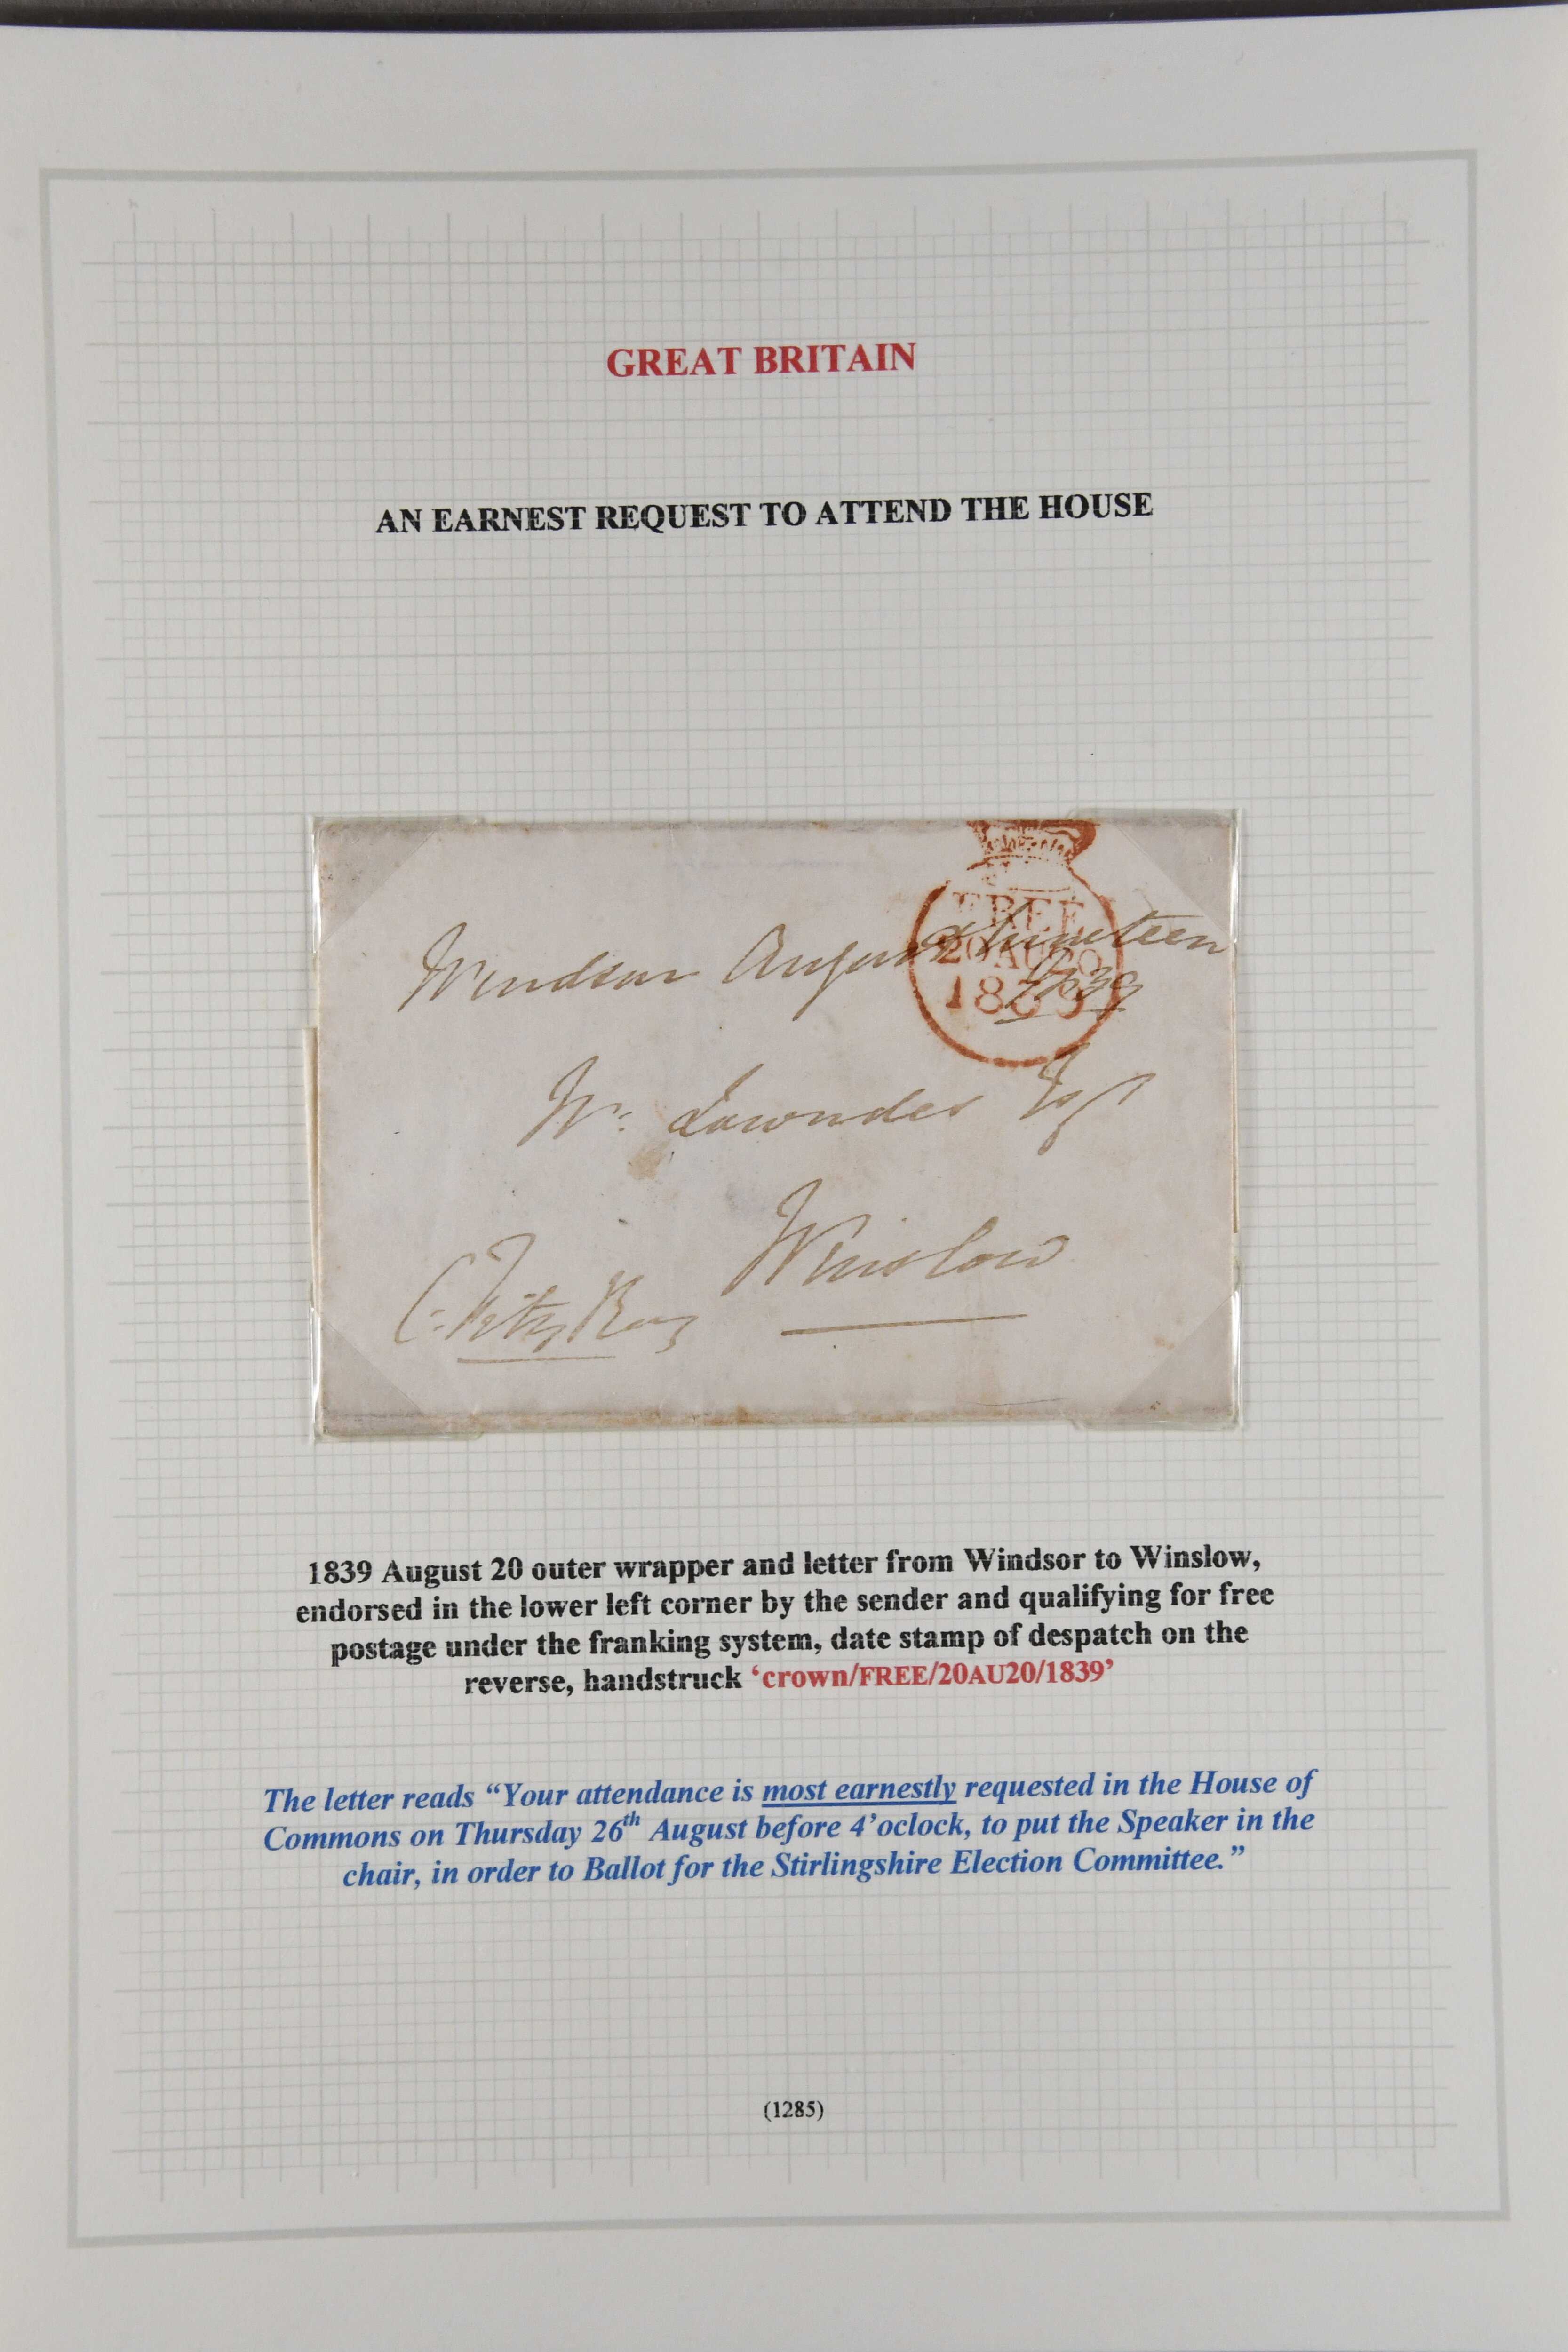 GREAT BRITAIN
AN EARNEST REQUEST TO ATTEND THE HOUSE
FREE
20AU20
1839
Windsor August nineteen
1839
Wm: Lowndes Esqr
Winslow
C: FitzRoy
1839 August 20 outer wrapper and letter from Windsor to Winslow,
endorsed in the lower left corner by the sender and qualifying for free
postage under the franking system, date stamp of despatch on the
reverse, handstruck ‘crown/FREE/20AU20/1839’
The letter reads “Your attendance is most earnestly requested in the House of
Commons on Thursday 26th August before 4’oclock, to put the Speaker in the
chair, in order to Ballot for the Stirlingshire Election Committee.”
(1285)